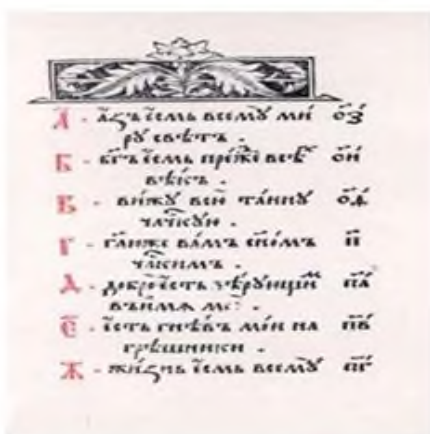 А҃ - а҆́зъ є҆́смь всемꙋ̀ ми ѻ҃з
рꙋ свѣ́тъ .
Б - бг҃ъ є҆́смь пре́же всѣ́х ѻ҃и
вѣ́къ .
В - ви́жꙋ всю̀ та́инꙋ ѻ҃ѳ
чл҃чкꙋю .
Г - гл҃ю же ва́мъ сн҃омъ п҃
чл҃кимъ .
Д - добро̀ є҆́сть вѣ́рꙋющим п҃а
въ и҆́мѧ моѐ .
Є҃ - є҆́сть гнѣ́въ мо́и на п҃в
грѣ́шники .
Ж - жи́знь є҆́смь всемꙋ̀ п҃г